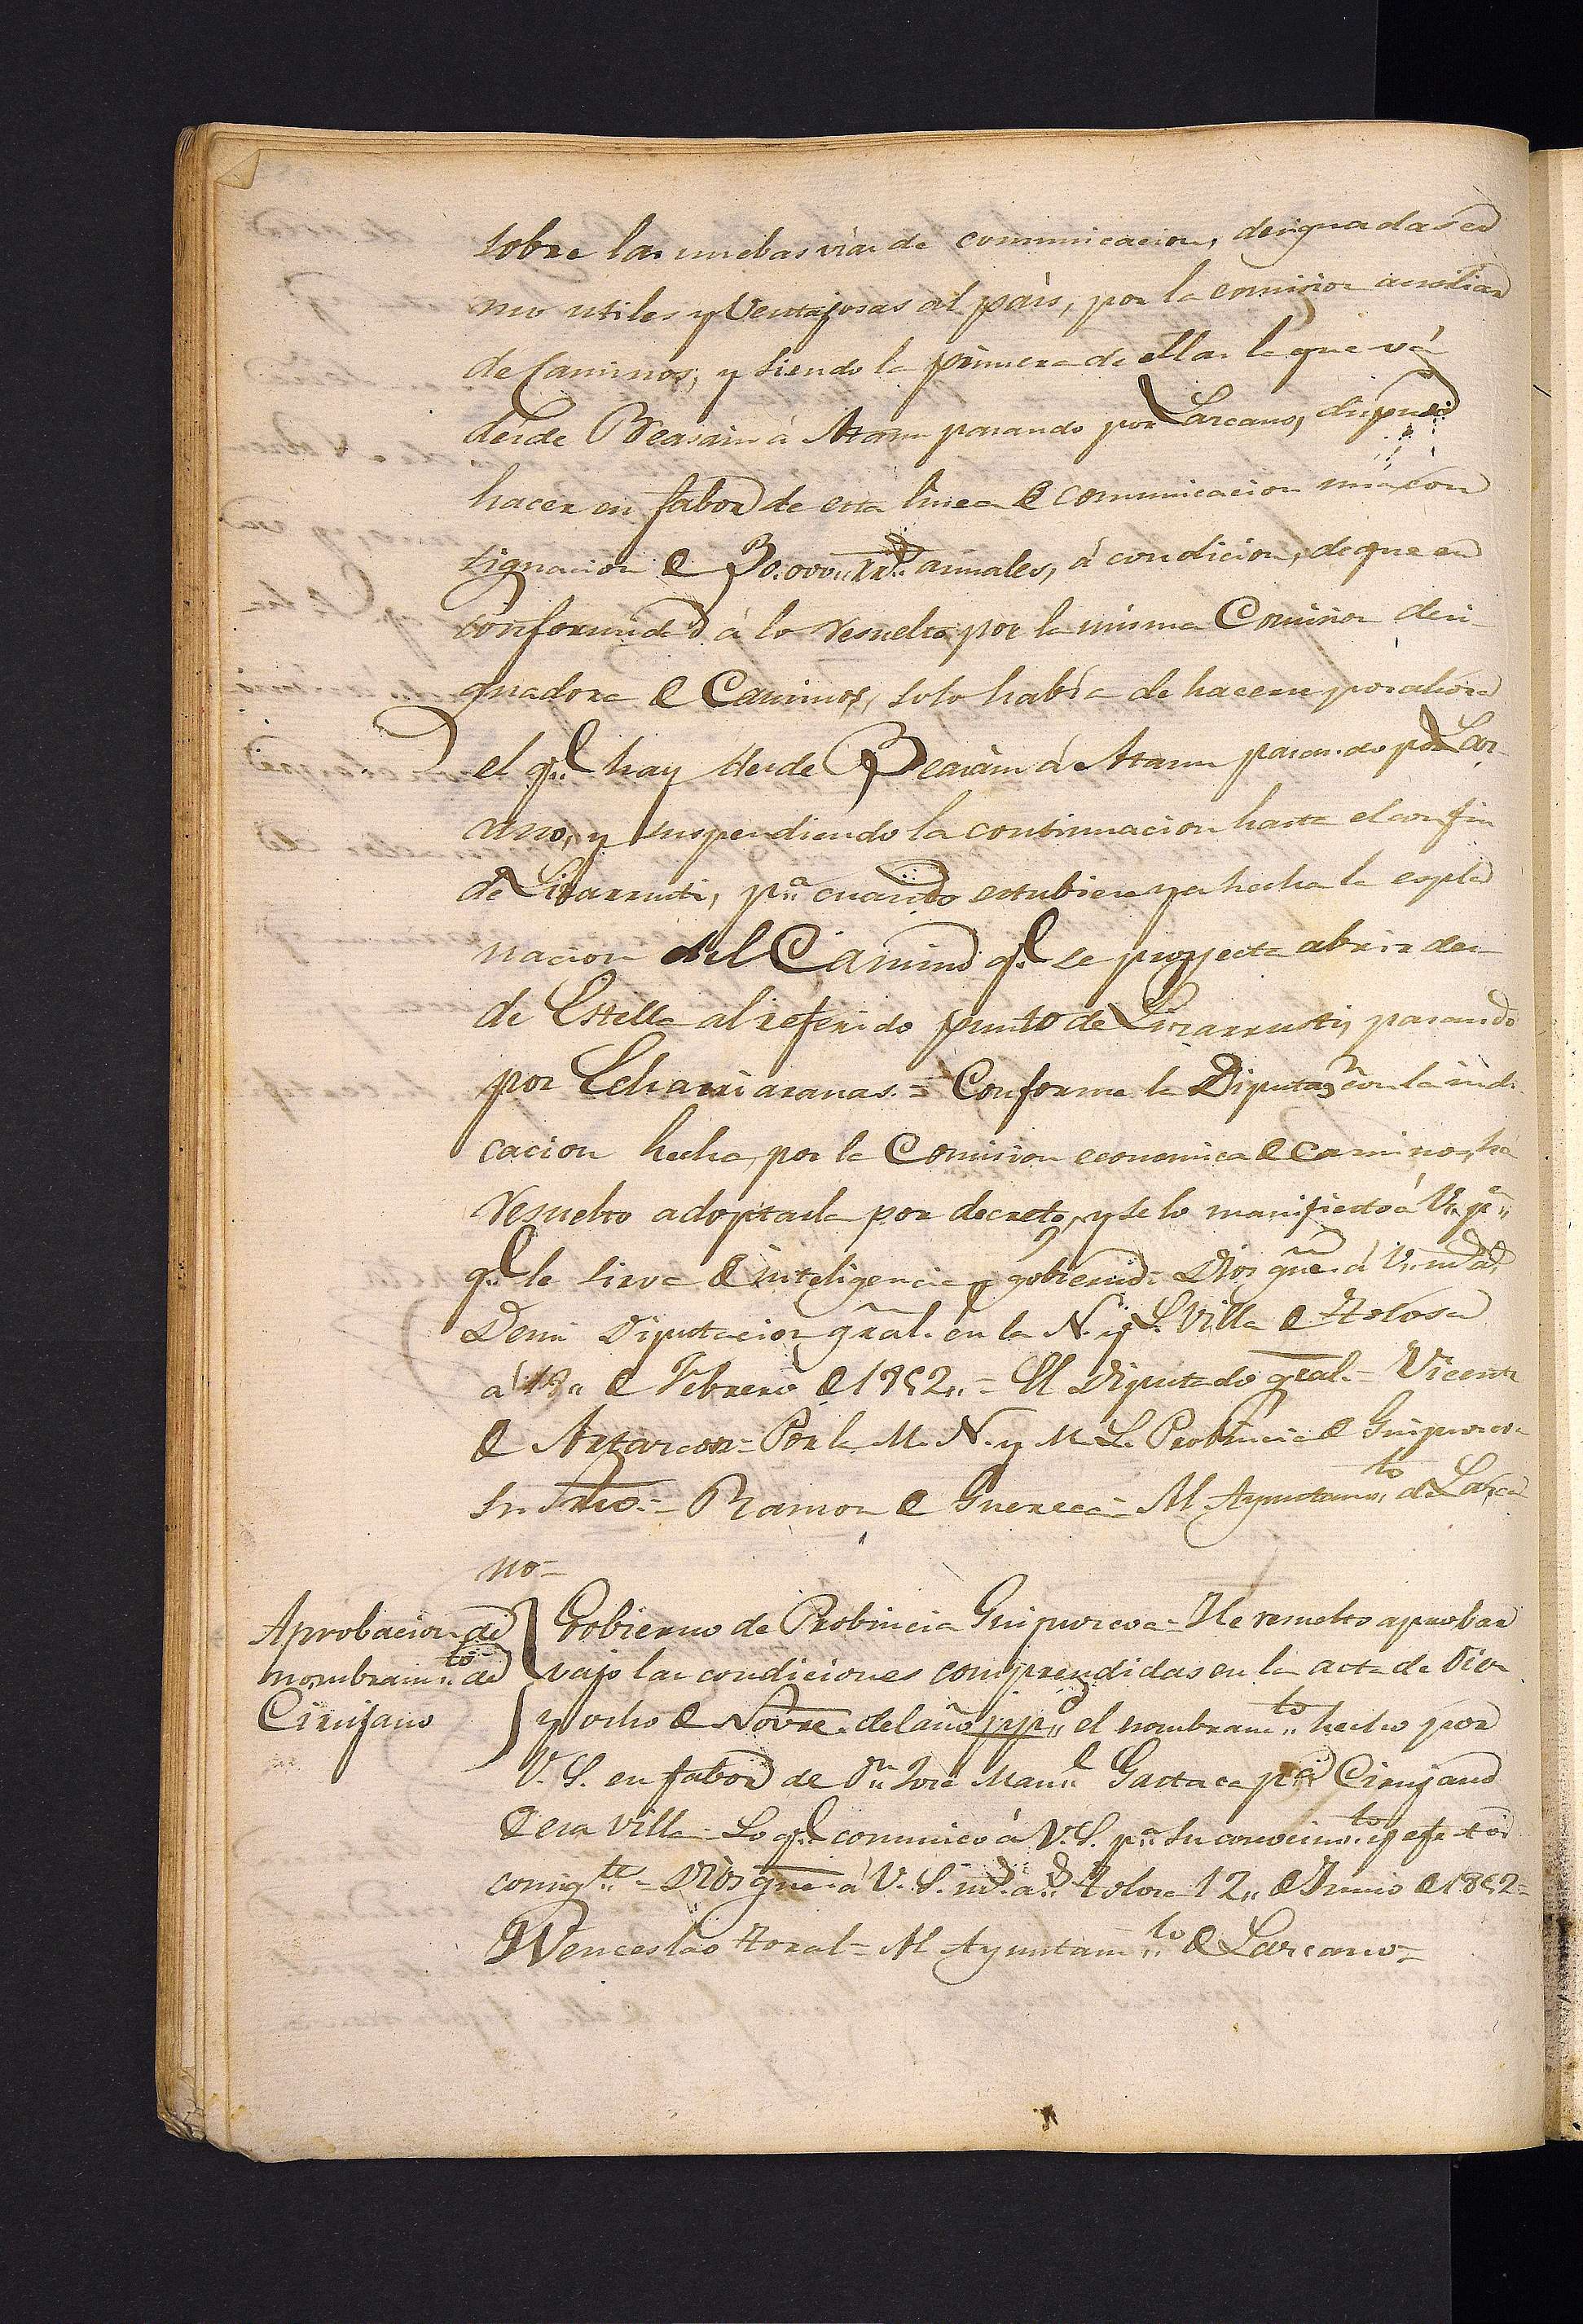 sobre las nuebas vías de comunicacion, designadas co
mo utiles y Ventajosas al país, por la comision auxiliar
de Caminos; y siendo la primera de ellas la que vá
desde Beasain á Ataun pasando por Lazcano, dispuso
hacer en fabor de esta linea de comunicacion una con
signacion de 30.000,, rs. anuales, á condicion, de que en
conformidad á lo resuelto por la misma Comision desi-
gnadora de Caminos, solo había de hacerse por ahora
el ql. hay desde Beasain á Ataun pasando por Laz-
cano, y suspendiendo la continuacion hasta el confin
de Lizarrusti, pa. cuando estubiere ya hecha la espla
nacion del Camino ql. se proyecta abrir des-
de Estella al referido punto de Lizarrusti, pasando
por Echarri aranas. = Conforme la Diputazn. con la indi
cacion hecha, por la Comision economica de Caminos, há
resuelto adoptarla por decreto, y se lo manifiesto á V. pa.
ql. le sirva de inteligencia y gobierno = Dios gue. á V. ms. as.
De mi Diputacion gral. en la N. y L. Villa de Tolosa
á 18,, de Febrero de 1852,, = El Diputado gral. = Vicente
de Artazcoz = Por la M. N. y M. L. Probincia de Guipuzcoa
su Srio. = Ramon de Guereca = Al Ayuntamto. de Lazca
no =
Aprobacion de
nombramto. de
Cirujano
Gobierno de Probincia Guipuzcoa = He resuelto aprobar
vajo las condiciones comprendidas en la acta de Diez
y ocho de Novre. del año ppdo. el nombramto. hecho por
V. S. en fabor de Dn. José Manl. Gastaca para Cirujano
de esa villa = Lo ql. comunico á V. S. pa. su conocimto. y efectos
consigtes. = Dios gue. á V. S. ms. as. Tolosa 12,, de Junio de 1852 =
Wenceslao Toral = Al Ayuntamto. de Lazcano =